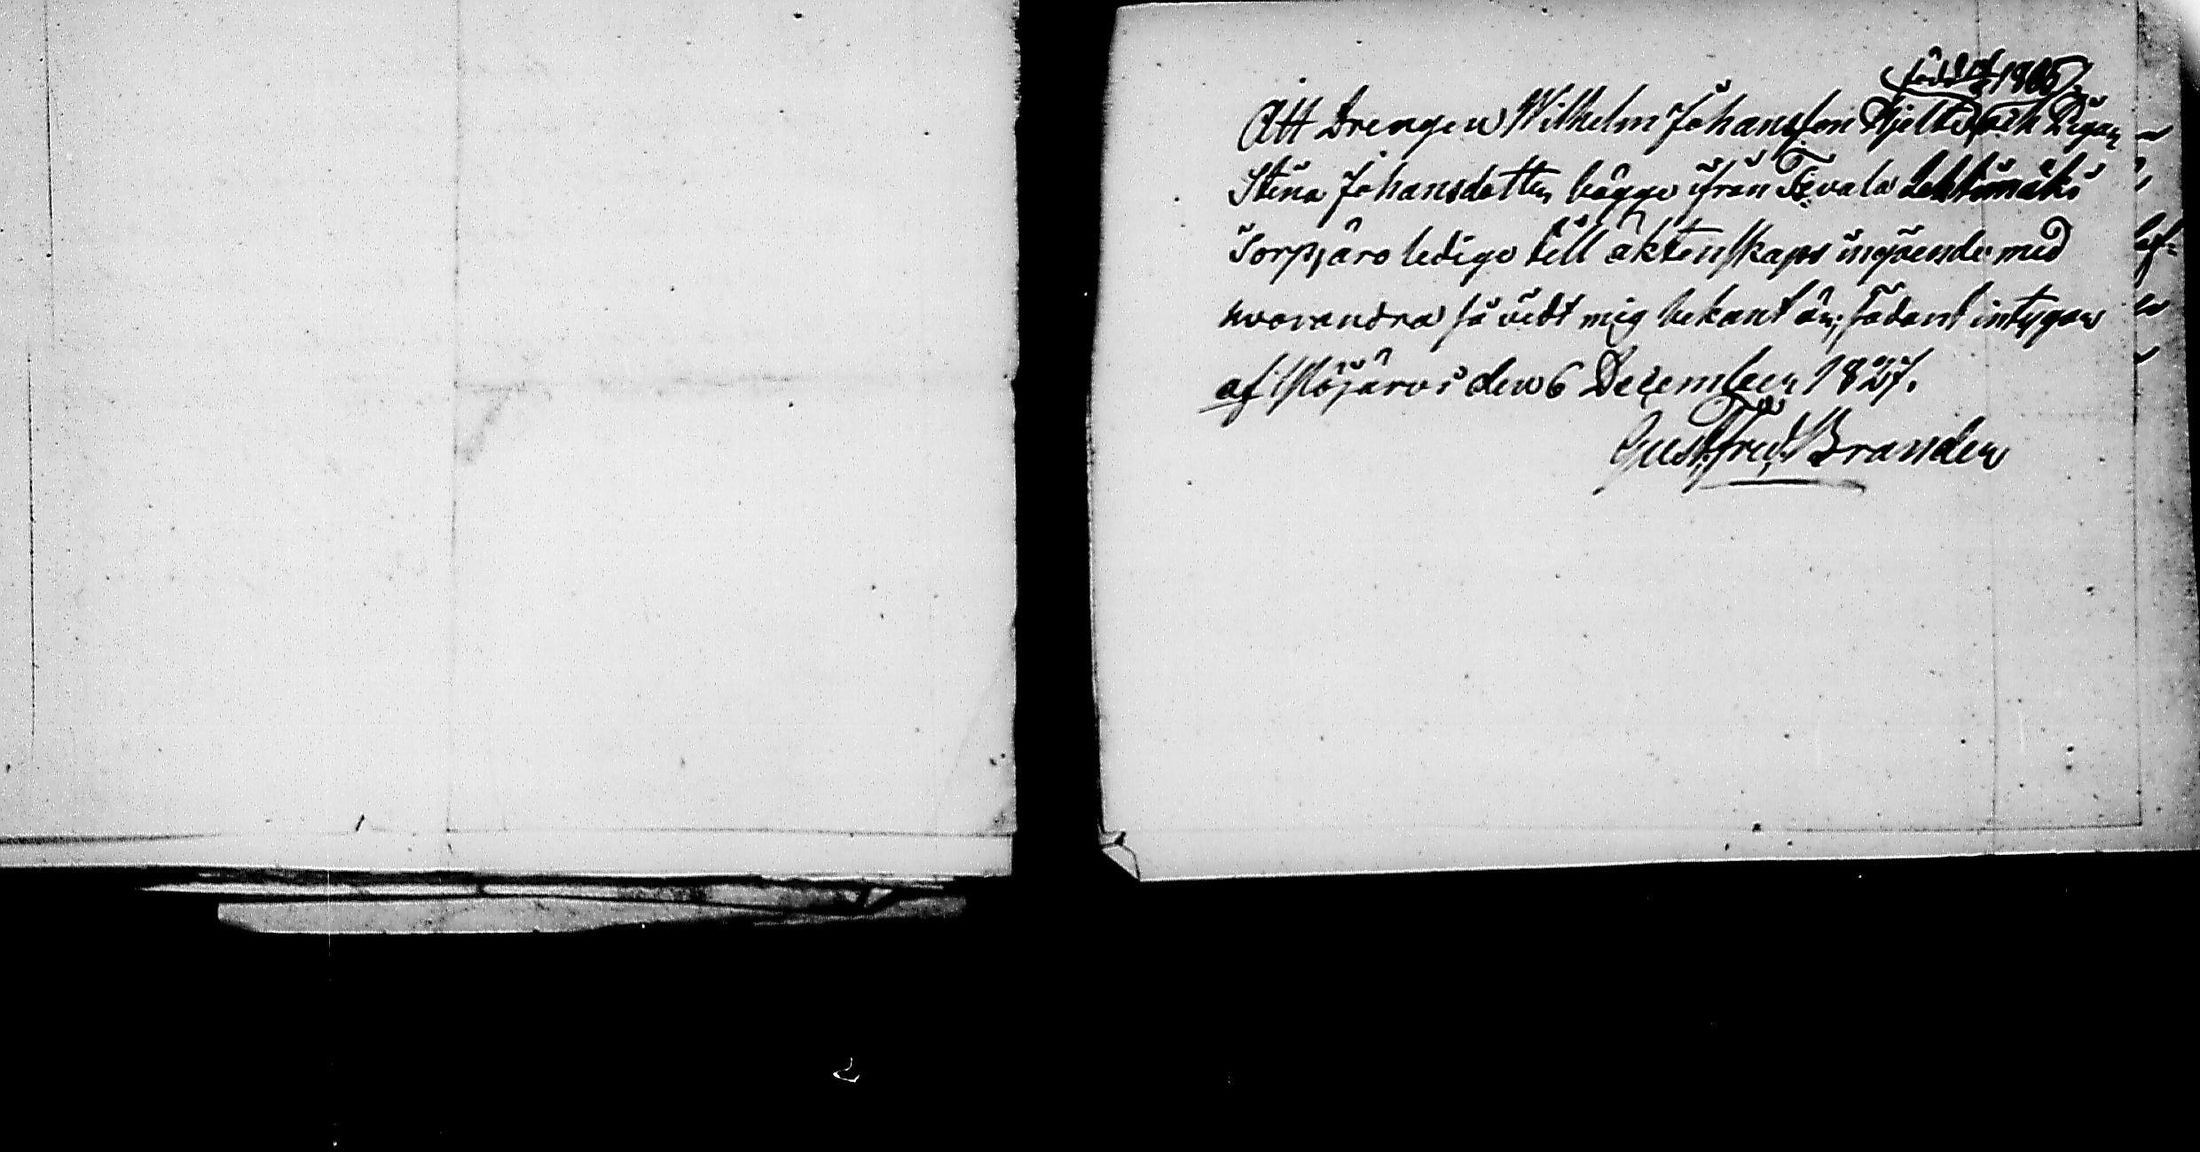 född 1805
Att Drengen Wilhelm Johansson Hjelte och Pigan
Stina Johansdotter bägge ifrån Tevala
Torp, äro ledige till äktenskaps ingående med
hvarandra så vidt mig bekant är; sådant intygar
af Ylöjärvi den 6 December 1827.
Gust. Fred. Brander